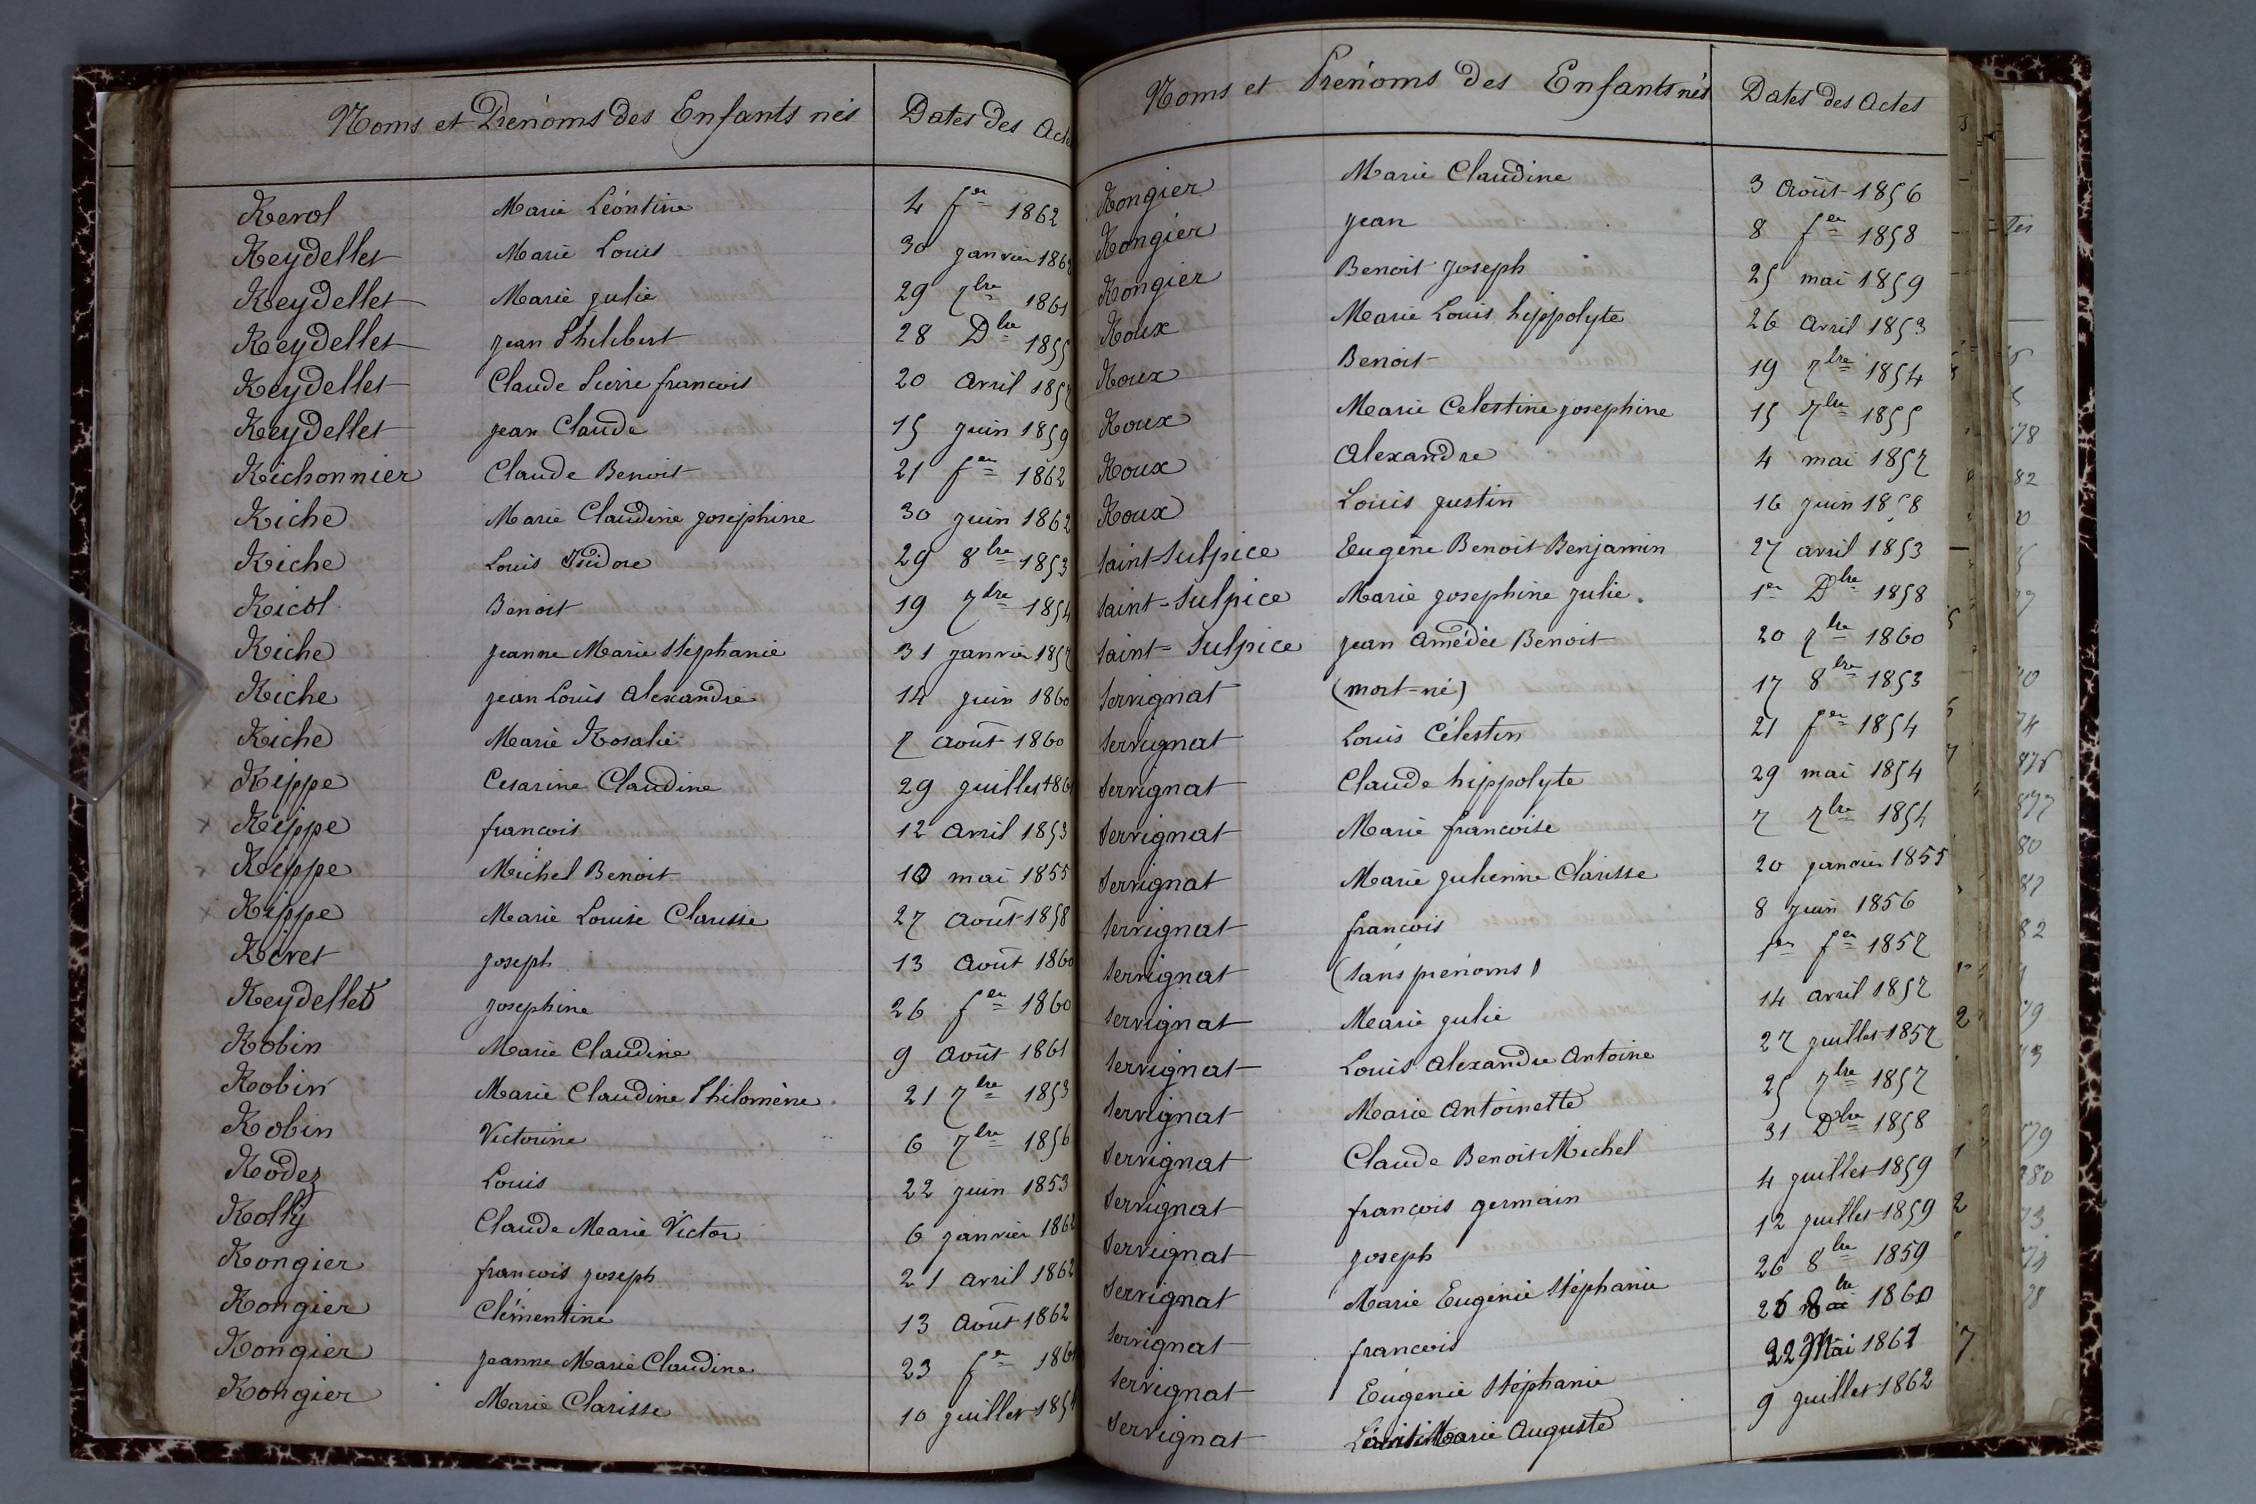 Noms et Prénoms des Enfants nés Dates des Actes
Revol Marie Léontine 4 fer 1862
Reydellet Marie Louis 30 janvier 186
Reydellet Marie julie 29 7bre 1861
Reydellet jean Philibert 28 Dbre 1855
Reydellet Claude Pierre francois 20 avril 1857
Reydellet jean Claude 15 juin 1859
Richonnier Claude Benoit 21 fer 1862
Riche Marie Claudine josephine 30 juin 1862
Riche Louis Isidore 29 8bre 1853
Ricol Benoit 19 7bre 1854
Riche jeanne Marie Stéphanie 31 janvier 1857
Riche jean Louis alexandre 14 juin 1860
Riche Marie Rosalie 7 août 1860
x Rippe Cesarine Claudine 29 juillet 186
x Rippe francois 12 avril 1853
x Rippe Michel Benoit 10 mai 1855
x Rippe Marie Louise Clarisse 27 août 1858
Rivet joseph 13 août 1860
Reydellet josephine 26 fer 1860
Robin Marie Claudine 9 août 1861
Robin Marie Claudine Philomène 21 7bre 1853
Robin Victorine 6 7bre 1856
Rodez Louis 22 juin 1853
Rolly Claude Marie Victor 6 janvier 1862
Rongier francois joseph 21 avril 1862
Rongier Clémentine 13 août 1862
Rongier jeanne Marie Claudine 23 fer 186
Rongier Marie Clarisse 10 juillet 185
Noms et Prénoms des Enfants nés Dates des Actes
Rongier Marie Claudine 3 août 1856
Rongier jean 8 fer 1858
Rongier Benoit joseph 25 mai 1859
Roux Marie Louis hippolyte 26 avril 1853
Roux Benoit 19 7bre 1854
Roux Marie Celestine josephine 15 7bre 1855
Roux alexandre 4 mai 1857
Roux Louis justin 16 juin 1858
Saint-Sulpice Eugène Benoit Benjamin 27 avril 1853
Saint-Sulpice Marie josephine julie 1er Dbre 1858
Saint-Sulpice jean amédée Benoit 20 7bre 1860
Servignat (mort-né) 17 8bre 1853
Servignat Louis Célestin 21 fer 1854
Servignat Claude hippolyte 29 mai 1854
Servignat Marie francoise 7 7bre 1854
Servignat Marie julienne Clarisse 20 janvier 1855
Servignat francois 8 juin 1856
Servignat (sans prénoms) 1er fer 1857
Servignat Marie julie 14 avril 1857
Servignat Louis alexandre antoine 27 juillet 1857
Servignat Marie antoinette 25 7bre 1857
Servignat Claude Benoit Michel 31 Dbre 1858
Servignat francois germain 4 juillet 1859
Servignat joseph 12 juillet 1859
Servignat Marie Eugénie Stéphanie 26 8bre 1859
Servignat francois 1860
Servignat Eugenie Stéphanie 22 Mai 1861
Servignat Marie auguste 9 juillet 1862